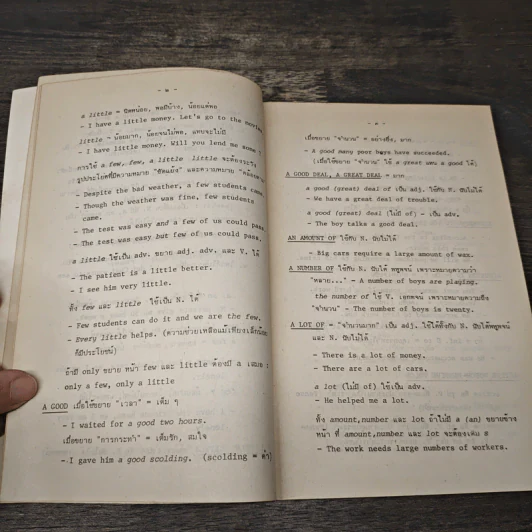 a little = นิดหน่อย, พอมีบ้าง, น้อยแต่พอ
- I have a little money. Let's go to the movies
little = น้อยมาก, น้อยจนไม่พอ, แทบจะไม่มี
- I have little money. Will you lend me some
การใช้ a few, few, a little little จะต้องระวัง
รูปประโยคที่มีความหมาย "ขัดแย้ง" และความหมาย
- Despite the bad weather, a few students came
- Though the weather was fine, few students
came.
- The test was easy and a few of us could pass
- The test was easy but few of us could pass.
a little ใช้เป็น adv. ขยาย adj. adv. และ V. ได้
- The patient is a little better.
- I see him very little.
ทั้ง few และ little ใช้เป็น N. ได้
- Few students can do it and we are the few.
- Every little helps. (ความช่วยเหลือแม้เพียงเล็กน้อย
ก็มีประโยชน์)
ถ้ามี only ขยาย หน้า few และ little ต้องมี a เสมอ :
only a few, only a little
A GOOD เมื่อใช้ขยาย "เวลา" = เต็ม ๆ
- I waited for a good two hours.
เมื่อขยาย "การกระทำ" = เต็มรัก, สมใจ
- I gave him a good scolding. (scolding =
เมื่อขยาย "จำนวน" = อย่างยิ่ง, มาก
- A good many poor boys have succeeded.
(เมื่อใช้ขยาย "จำนวน" ใช้ a great แทน a good ได้)
A GOOD DEAL, A GREAT DEAL = มาก
a good (great) deal of เป็น adj. ใช้กับ N. นับไม่ได้
- We have a great deal of trouble.
a good (great) deal (ไม่มี of) - เป็น adv.
- The boy talks a good deal.
AN AMOUNT OF ใช้กับ N. นับไม่ได้
- Big cars require a large amount of wax.
A NUMBER OF ใช้กับ N. นับได้ พหูพจน์ เพราะหมายความว่า
"หลาย..." - A number of boys are playing.
the number of ใช้ V. เอกพจน์ เพราะหมายความถึง
"จำนวน" - The number of boys is twenty.
A LOT OF = "จำนวนมาก" เป็น adj. ใช้ได้ทั้งกับ N. นับได้พหูพจน์
และ N. นับไม่ได้
- There is a lot of money.
- There are a lot of cars.
a lot (ไม่มี of) ใช้เป็น adv.
- He helped me a lot.
ทั้ง amount,number และ lot ถ้าไม่มี a (an) ขยายข้าง
หน้า ที่ amount,number และ lot จะต้องเติม s
- The work needs large numbers of workers.